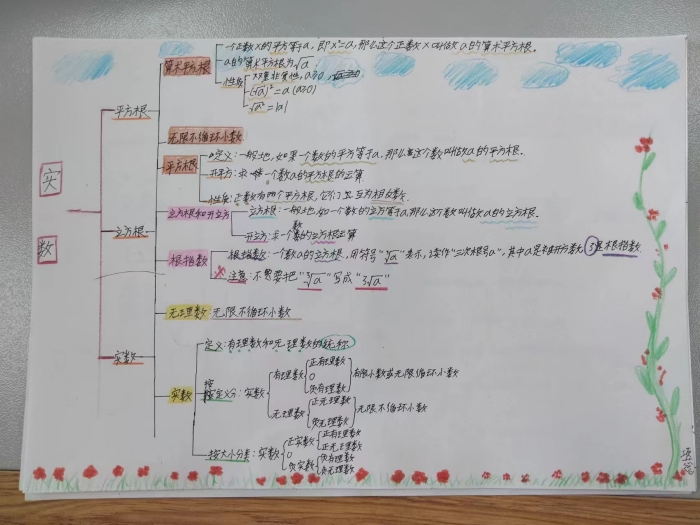 一个正数x的平方等于a，即x²=a，那么这个正数x叫做a的算术平方根。
算术平方根
a的算术平方根为√a
性质 双重非负性，a≥0，√a≥0
(√a)²=a (a≥0)
√a²=|a|
平方根
无限不循环小数
定义：一般地，如果一个数的平方等于a，那么这个数叫做a的平方根。
平方根
开平方：求一个数a的平方根的运算
性质：正数有两个平方根，它们互为相反数
实
数
立方根
立方根和开立方
立方根：一般地，如一个数的立方等于a，那么这个数叫做a的立方根。
开立方：求一个数的立方根运算
根指数
根指数：一个数a的立方根，用符号"∛a"表示，读作"三次根号a"，其中a是被开方数，3是根指数
注意：不要把"∛a"写成"3√a"
无理数 无限不循环小数
实数
定义：有理数和无理数的统称
实数
按定义分：实数
有理数
正有理数
0
负有理数
有限小数或无限循环小数
无理数
正无理数
负无理数
无限不循环小数
按大小分类：实数
正实数
正有理数
正无理数
0
负实数
负有理数
负无理数